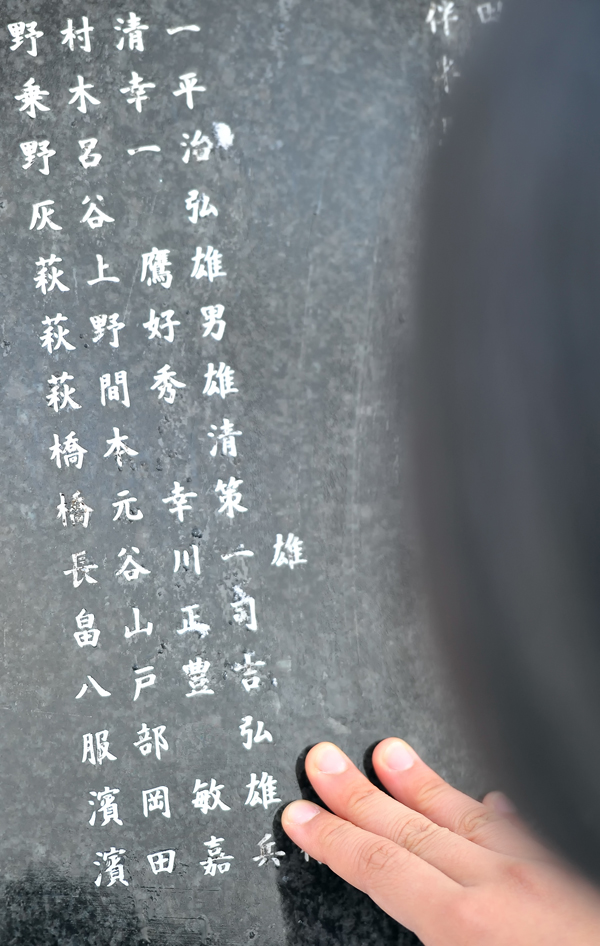 野村清一
乗木幸平
野呂一治
灰谷弘
萩上鷹雄
萩野好男
萩間秀雄
橋本清
橋元幸策
長谷川一雄
畠山正司
八戸豊吉
服部弘
濱岡敏雄
濱田嘉兵
伴田